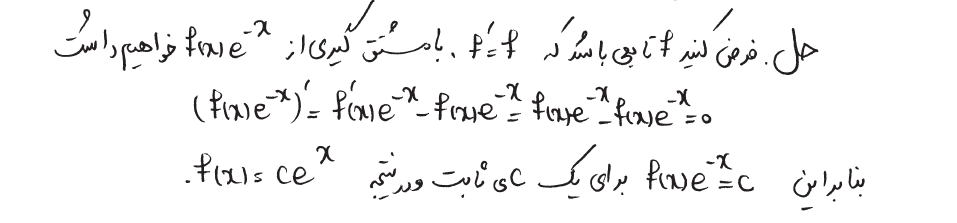 حل. فرض کنید f تابعی باشد که f′=f. با مشتق گیری از f(x)e^{-x} خواهیم داشت
(f(x)e^{-x})′= f′(x)e^{-x}-f(x)e^{-x}= f(x)e^{-x}-f(x)e^{-x}=0
بنابراین f(x)e^{-x}=c برای یک c ی ثابت و در نتیجه f(x)= ce^{x}.